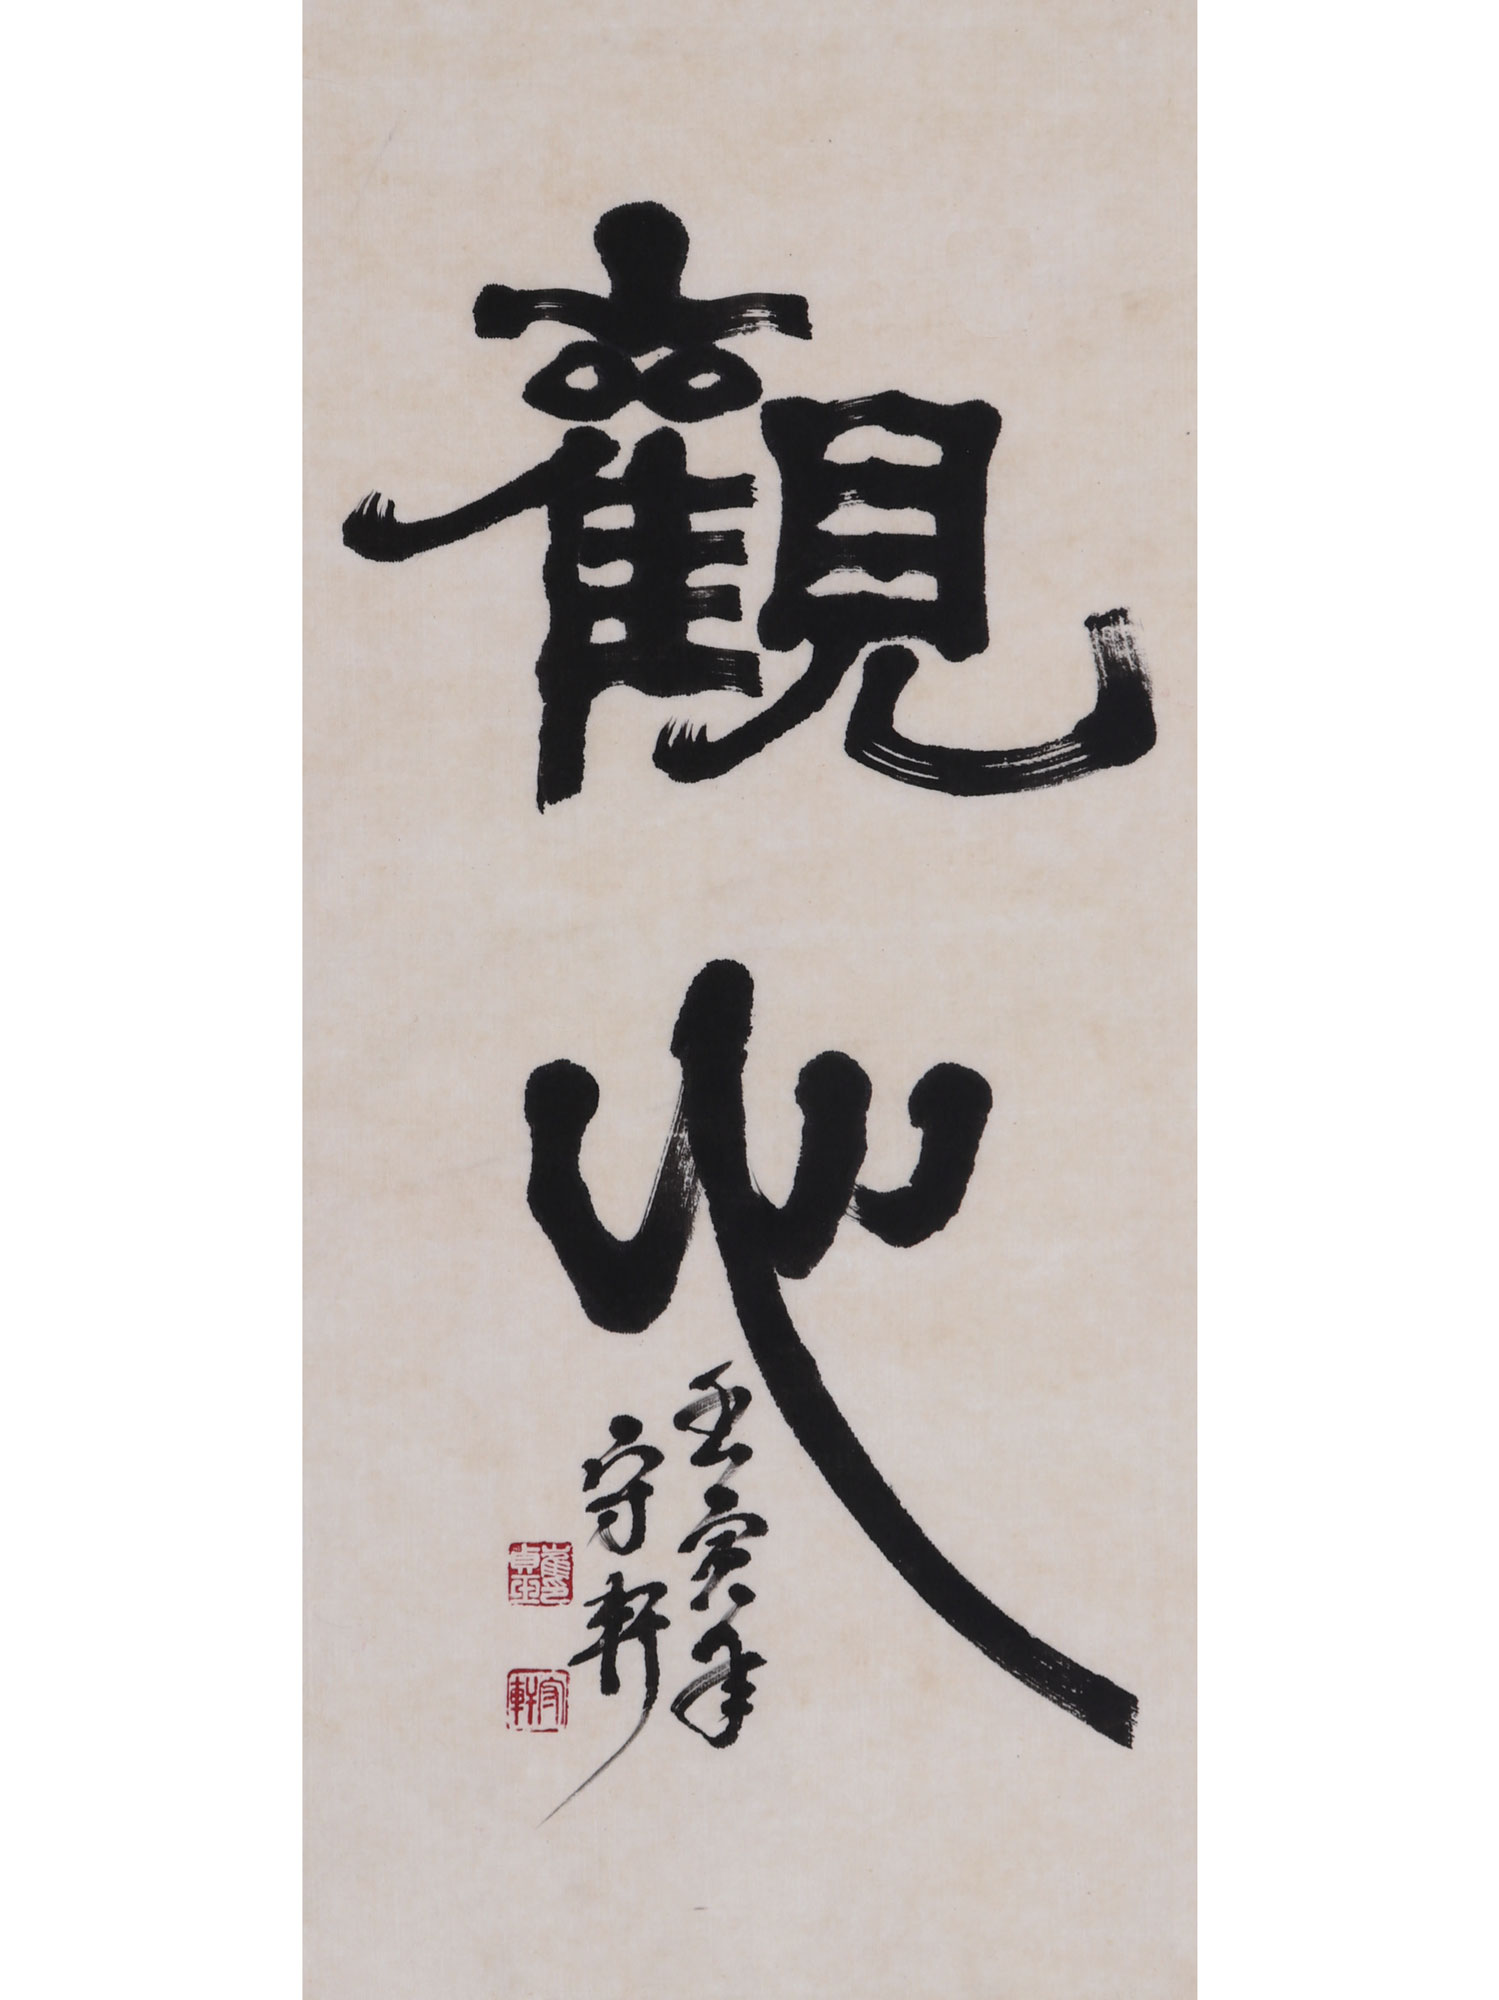 觀心
壬寅年
守軒
守軒